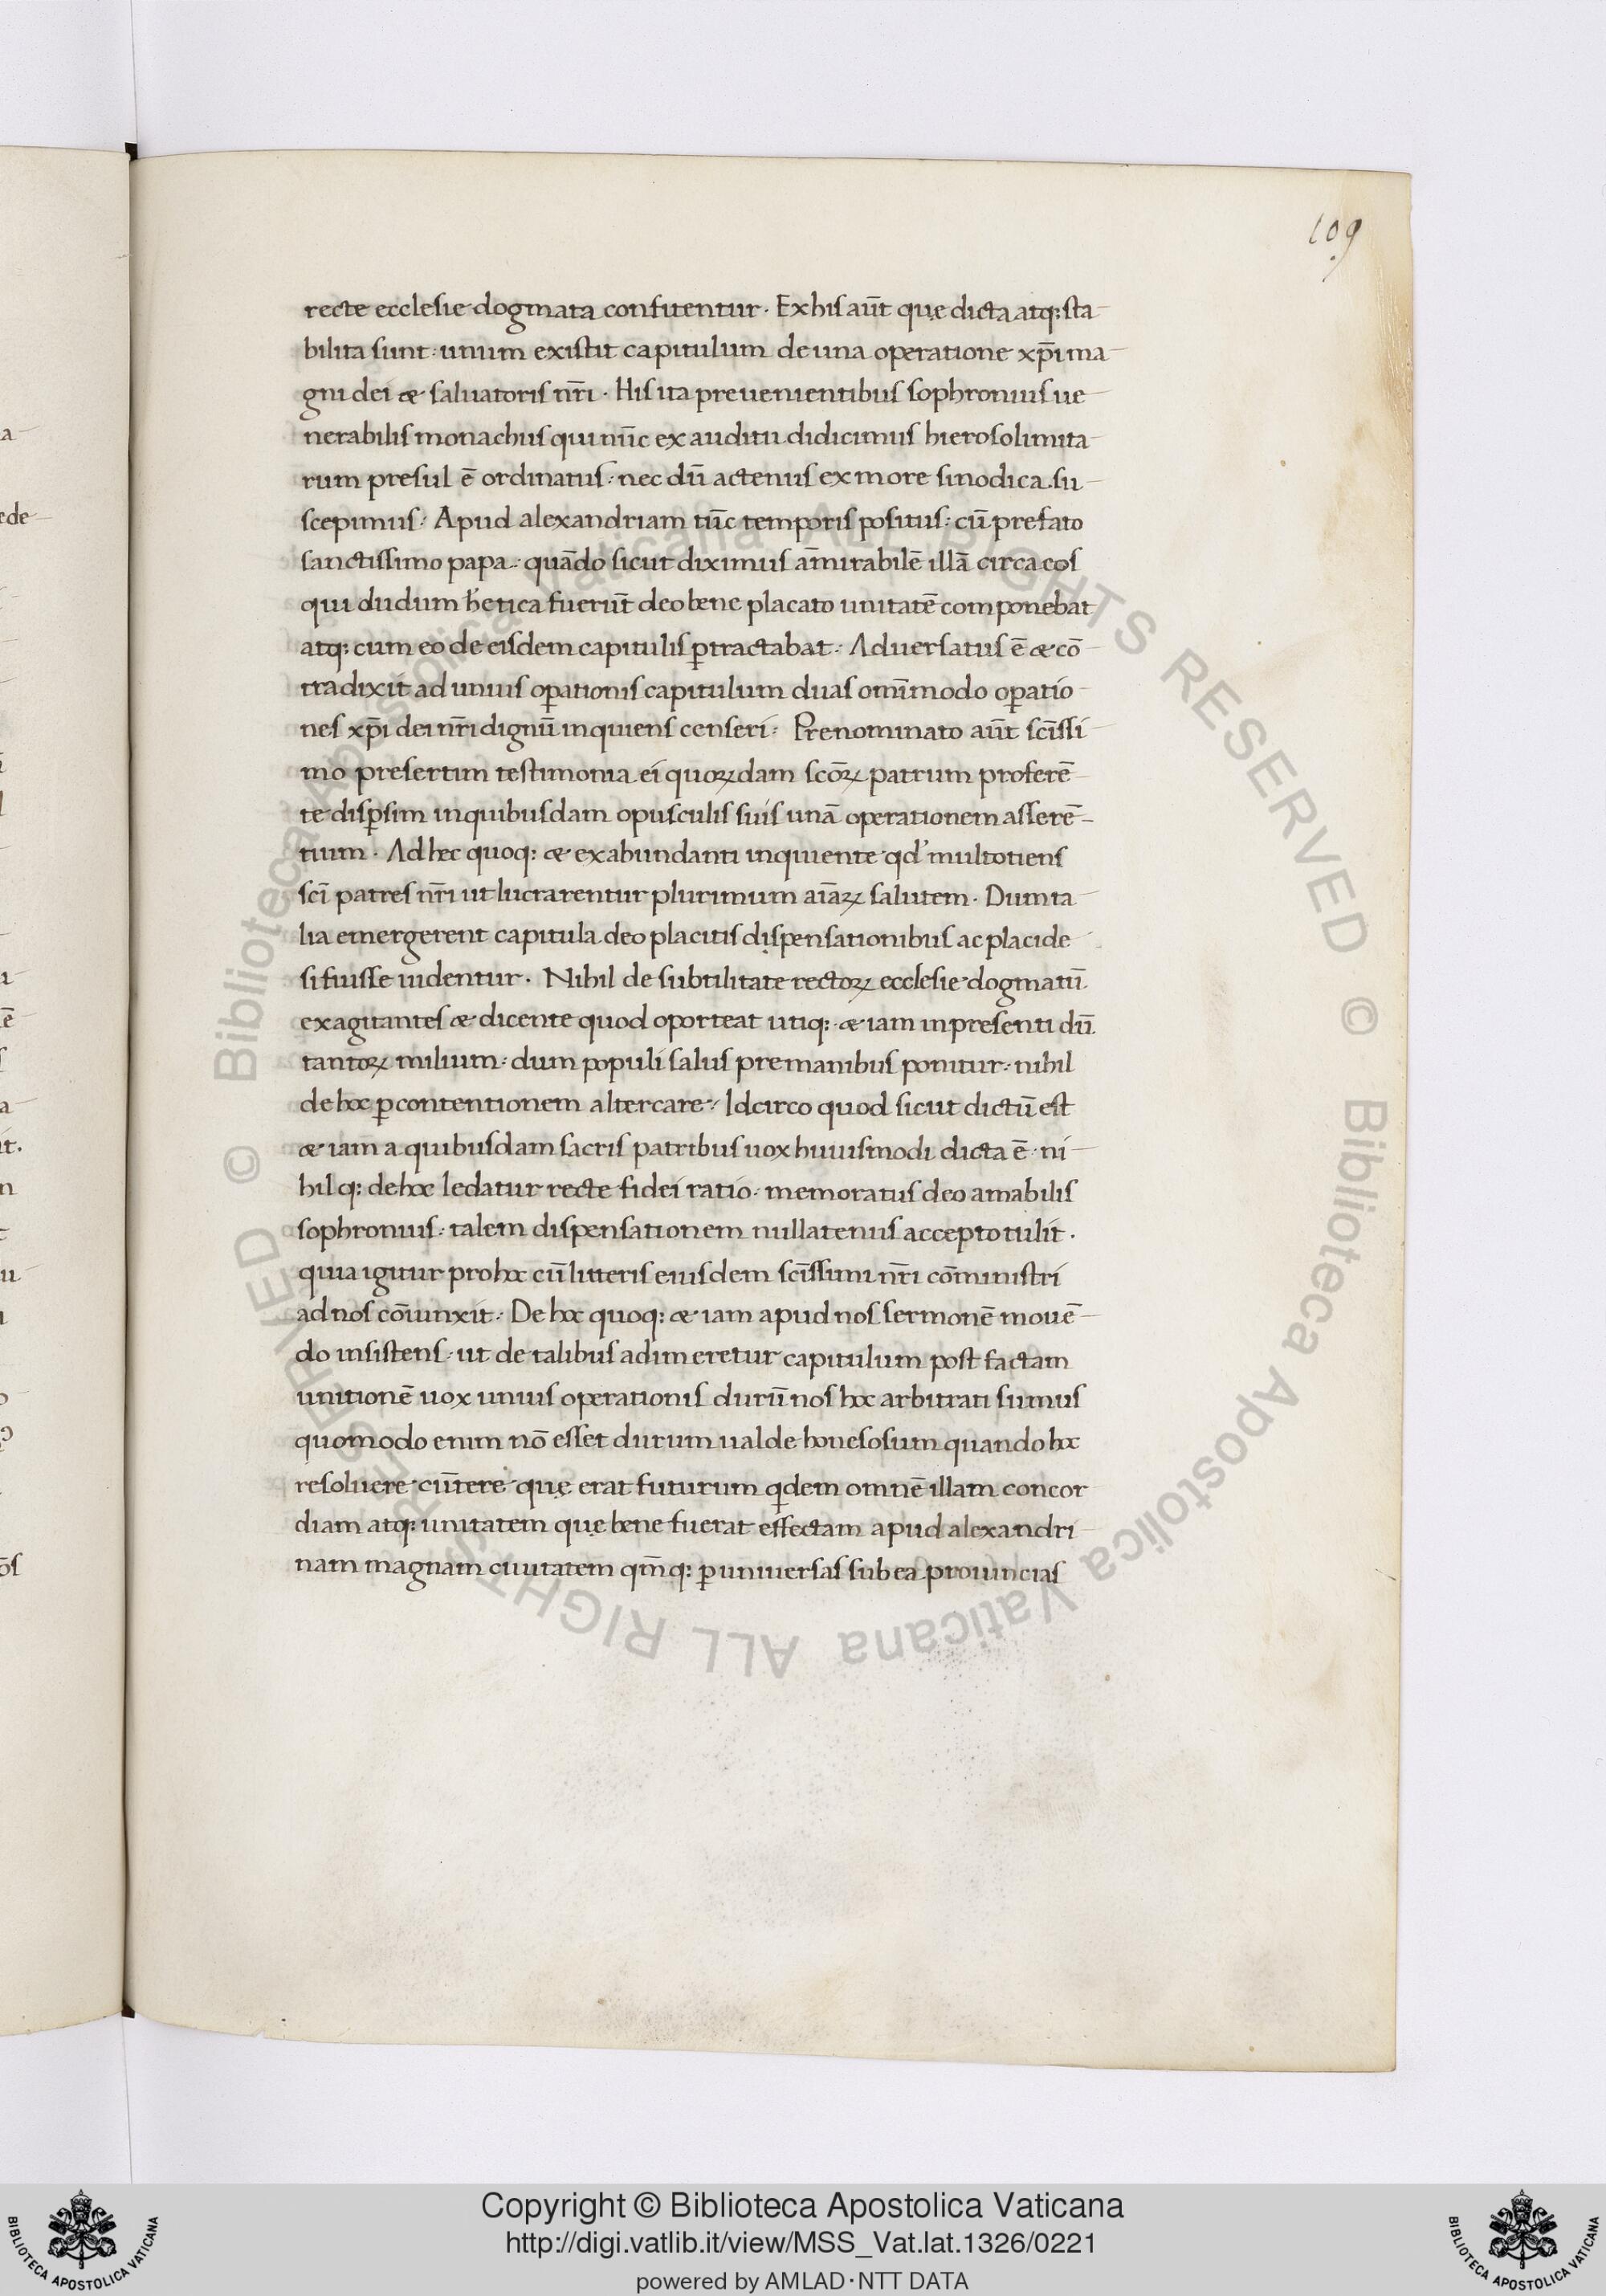 109
recte ecclesie dogmata confitentur. Ex his aūt quę dicta atq: sta
bilita sunt: unum existit capitulum de una operatione xp̄i ma
gni dei & saluatoris nr̄i. His ita preuenientibus sophronius ue
nerabilis monachus qui nūc ex auditu didicimus hierosolimita
rum presul ē ordinatus: nec dū actenus ex more sinodica su
scepimus: Apud alexandriam tūc temporis positus: cū prefato
sanctissimo papa: quādo sicut diximus am̄irabilē illā circa eos
qui dudum h̄etica fuerūt deo bene placato unitatē componebat
atq: cum eo de eisdem capitulis ꝑtractabat: Aduersatus ē & cō
tradixit ad unius oꝑationis capitulum duas omīmodo oꝑatio
nes xp̄i dei nr̄i dignū inquiens censeri: Prenominato aūt scīssi
mo presertim testimonia ei quoꝝdam scōꝝ patrum proferē
te disꝑsim in quibusdam opusculis suis unā operationem asserē
tium. Ad hec quoq: & ex abundanti inquiente qd' multotiens
scī patres nr̄i ut lucrarentur plurimum aīaꝝ salutem. Dum ta
lia emergerent capitula deo placitis dispensationibus ac placide
si fuisse uidentur. Nihil de subtilitate rectoꝝ ecclesie dogmatū
exagitantes & dicente quod oporteat utiq: & iam in presenti dū
tantoꝝ milium: dum populi salus pre manibus ponitur: nihil
de hoc ꝑ contentionem altercare: Idcirco quod sicut dictū est
& iam a quibusdam sacris patribus uox huiusmodi dicta ē. ni
hilq: de hoc ledatur recte fidei ratio. memoratus deo amabilis
sophronius: talem dispensationem nullatenus accepto tulit.
quia igitur pro hoc cū litteris eiusdem scīssimi nr̄i cōministri
ad nos cōiunxit: De hoc quoq: & iam apud nos sermonē mouē
do insistens: ut de talibus adimeretur capitulum post factam
unitionē uox unius operationis durū nos hoc arbitrati sumus
quomodo enim nō esset durum ualde honesosum quando hoc
resoluere cūtere quę erat futurum qdem omnē illam concor
diam atq: unitatem quę bene fuerat effectam apud alexandri
nam magnam ciuitatem qm̄q: ꝑ uniuersas sub ea prouincias
a
ede
ē
a
it.
n
u
ōs
© Biblioteca Apostolica Vaticana ALL RIGHTS RESERVED © Biblioteca Apostolica Vaticana ALL RIGHTS RESERVED
Copyright © Biblioteca Apostolica Vaticana
http://digi.vatlib.it/view/MSS_Vat.lat.1326/0221
powered by AMLAD·NTT DATA
BIBLIOTECA APOSTOLICA VATICANA
BIBLIOTECA APOSTOLICA VATICANA